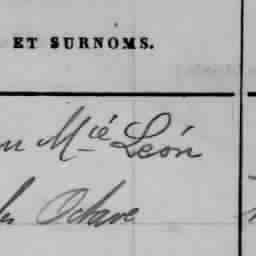 ET SURNOMS.
Mié Léon
Octave